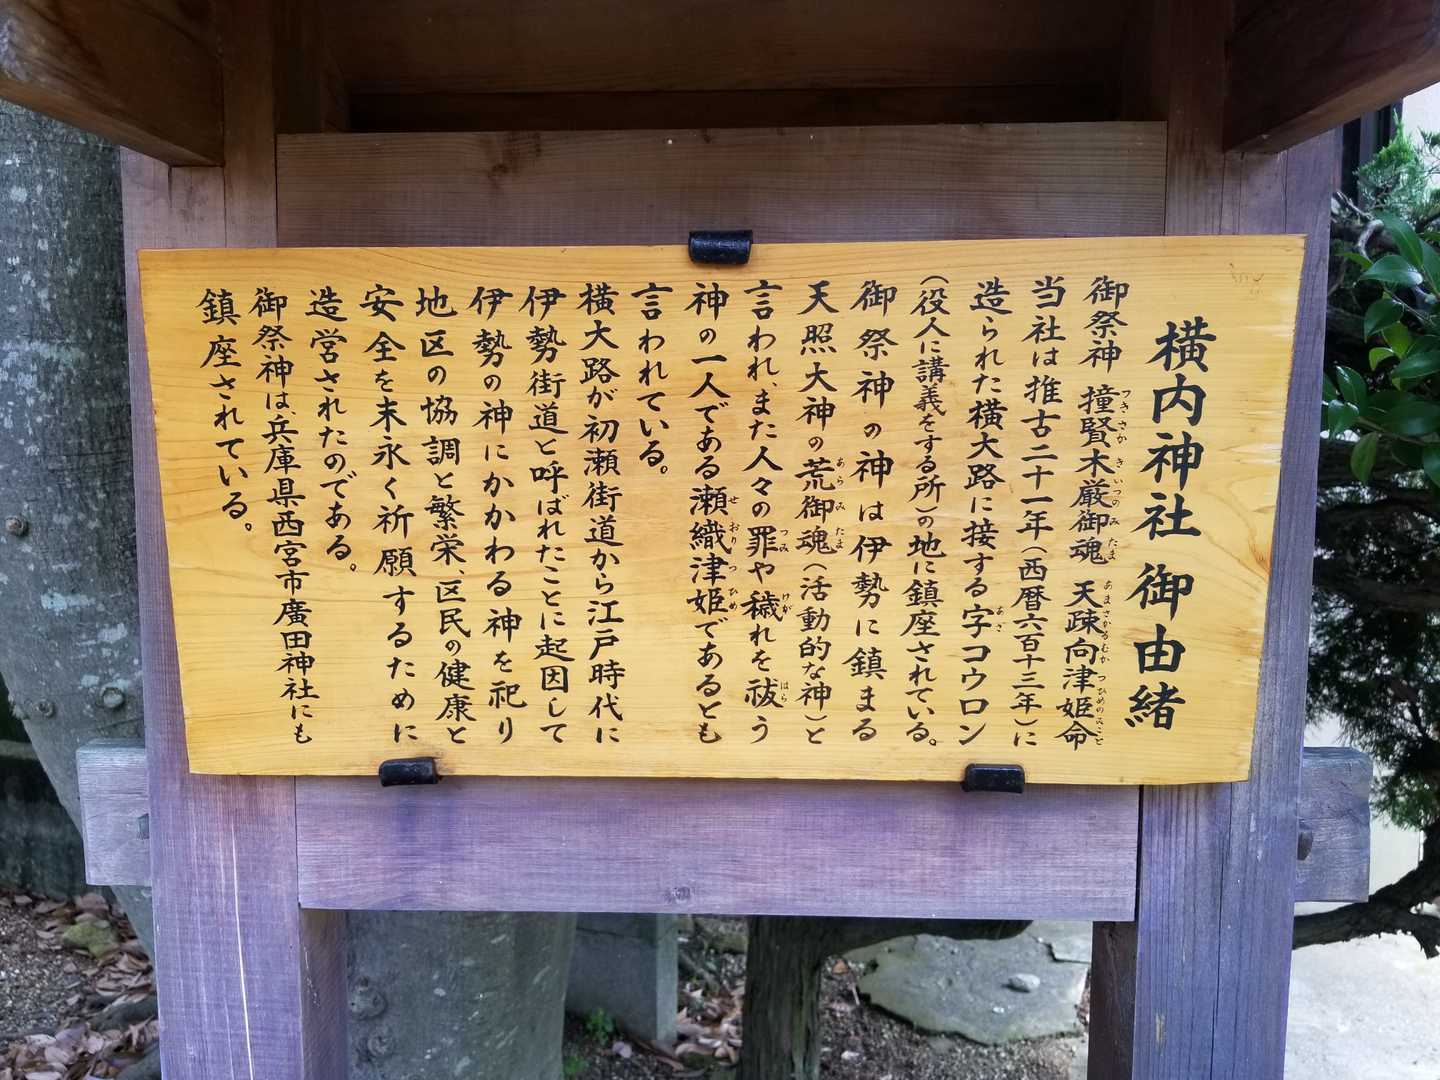 横内神社 御由緒
御祭神 撞賢木厳御魂 天疎向津姫命
当社は推古二十一年(西暦六百十三年)に
造られた横大路に接する字コウロン
(役人に講義をする所)の地に鎮座されている。
御祭神の神は伊勢に鎮まる
天照大神の荒御魂(活動的な神)と
言われ、また人々の罪や穢れを祓う
神の一人である瀬織津姫であるとも
言われている。
横大路が初瀬街道から江戸時代に
伊勢街道と呼ばれたことに起因して
伊勢の神にかかわる神を祀り
地区の協調と繁栄、区民の健康と
安全を末永く祈願するために
造営されたのである。
御祭神は、兵庫県西宮市廣田神社にも
鎮座されている。